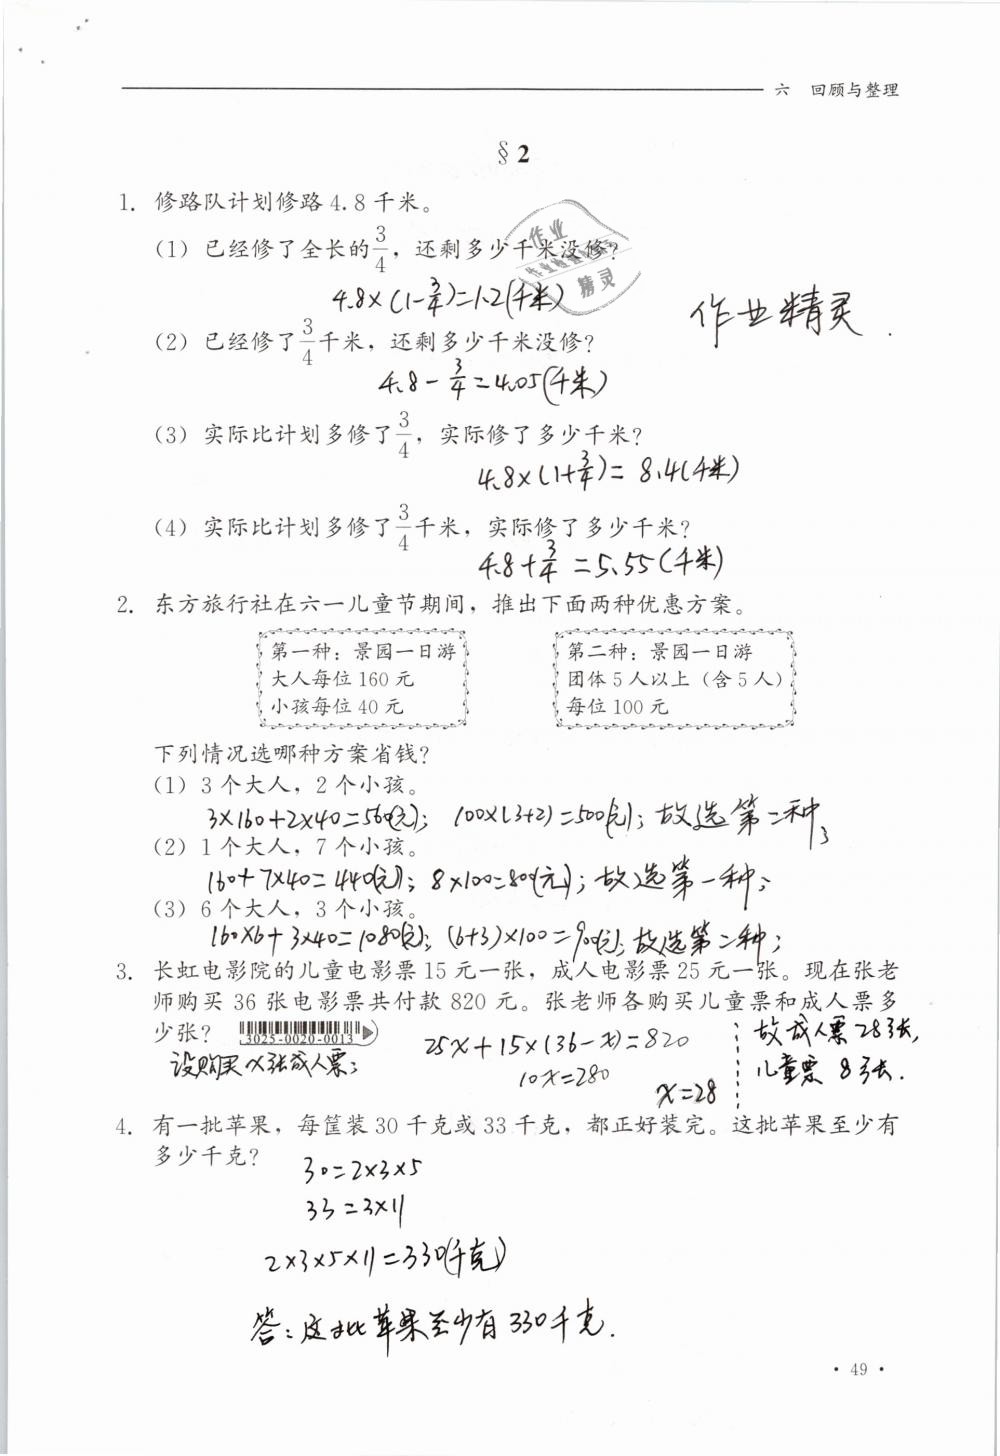 六 回顾与整理
§2
1. 修路队计划修路 4.8 千米。
(1) 已经修了全长的3/4，还剩多少千米没修？
作业
精灵
4.8×(1-3/4)=1.2(千米)
作业精灵.
(2) 已经修了3/4千米，还剩多少千米没修？
4.8-3/4=4.05(千米)
(3) 实际比计划多修了3/4，实际修了多少千米？
4.8×(1+3/4)=8.4(千米)
(4) 实际比计划多修了3/4千米，实际修了多少千米？
4.8+3/4=5.55(千米)
2. 东方旅行社在六一儿童节期间，推出下面两种优惠方案。
第一种：景园一日游
大人每位 160 元
小孩每位 40 元
第二种：景园一日游
团体 5 人以上（含 5 人）
每位 100 元
下列情况选哪种方案省钱？
(1) 3 个大人，2 个小孩。
3×160+2×40=560(元); 100×(3+2)=500(元); 故选第二种;
(2) 1 个大人，7 个小孩。
160+7×40=440(元); 8×100=800(元); 故选第一种;
(3) 6 个大人，3 个小孩。
160×6+3×40=1080(元); (6+3)×100=900(元); 故选第二种;
3. 长虹电影院的儿童电影票 15 元一张，成人电影票 25 元一张。现在张老
师购买 36 张电影票共付款 820 元。张老师各购买儿童票和成人票多
少张？
3025-0020-0013
设购买x张成人票;
25x+15×(36-x)=820
10x=280
x=28
故成人票28张,
儿童票8张.
4. 有一批苹果，每筐装 30 千克或 33 千克，都正好装完。这批苹果至少有
多少千克？
30=2×3×5
33=3×11
2×3×5×11=330(千克)
答:这批苹果至少有330千克.
· 49 ·